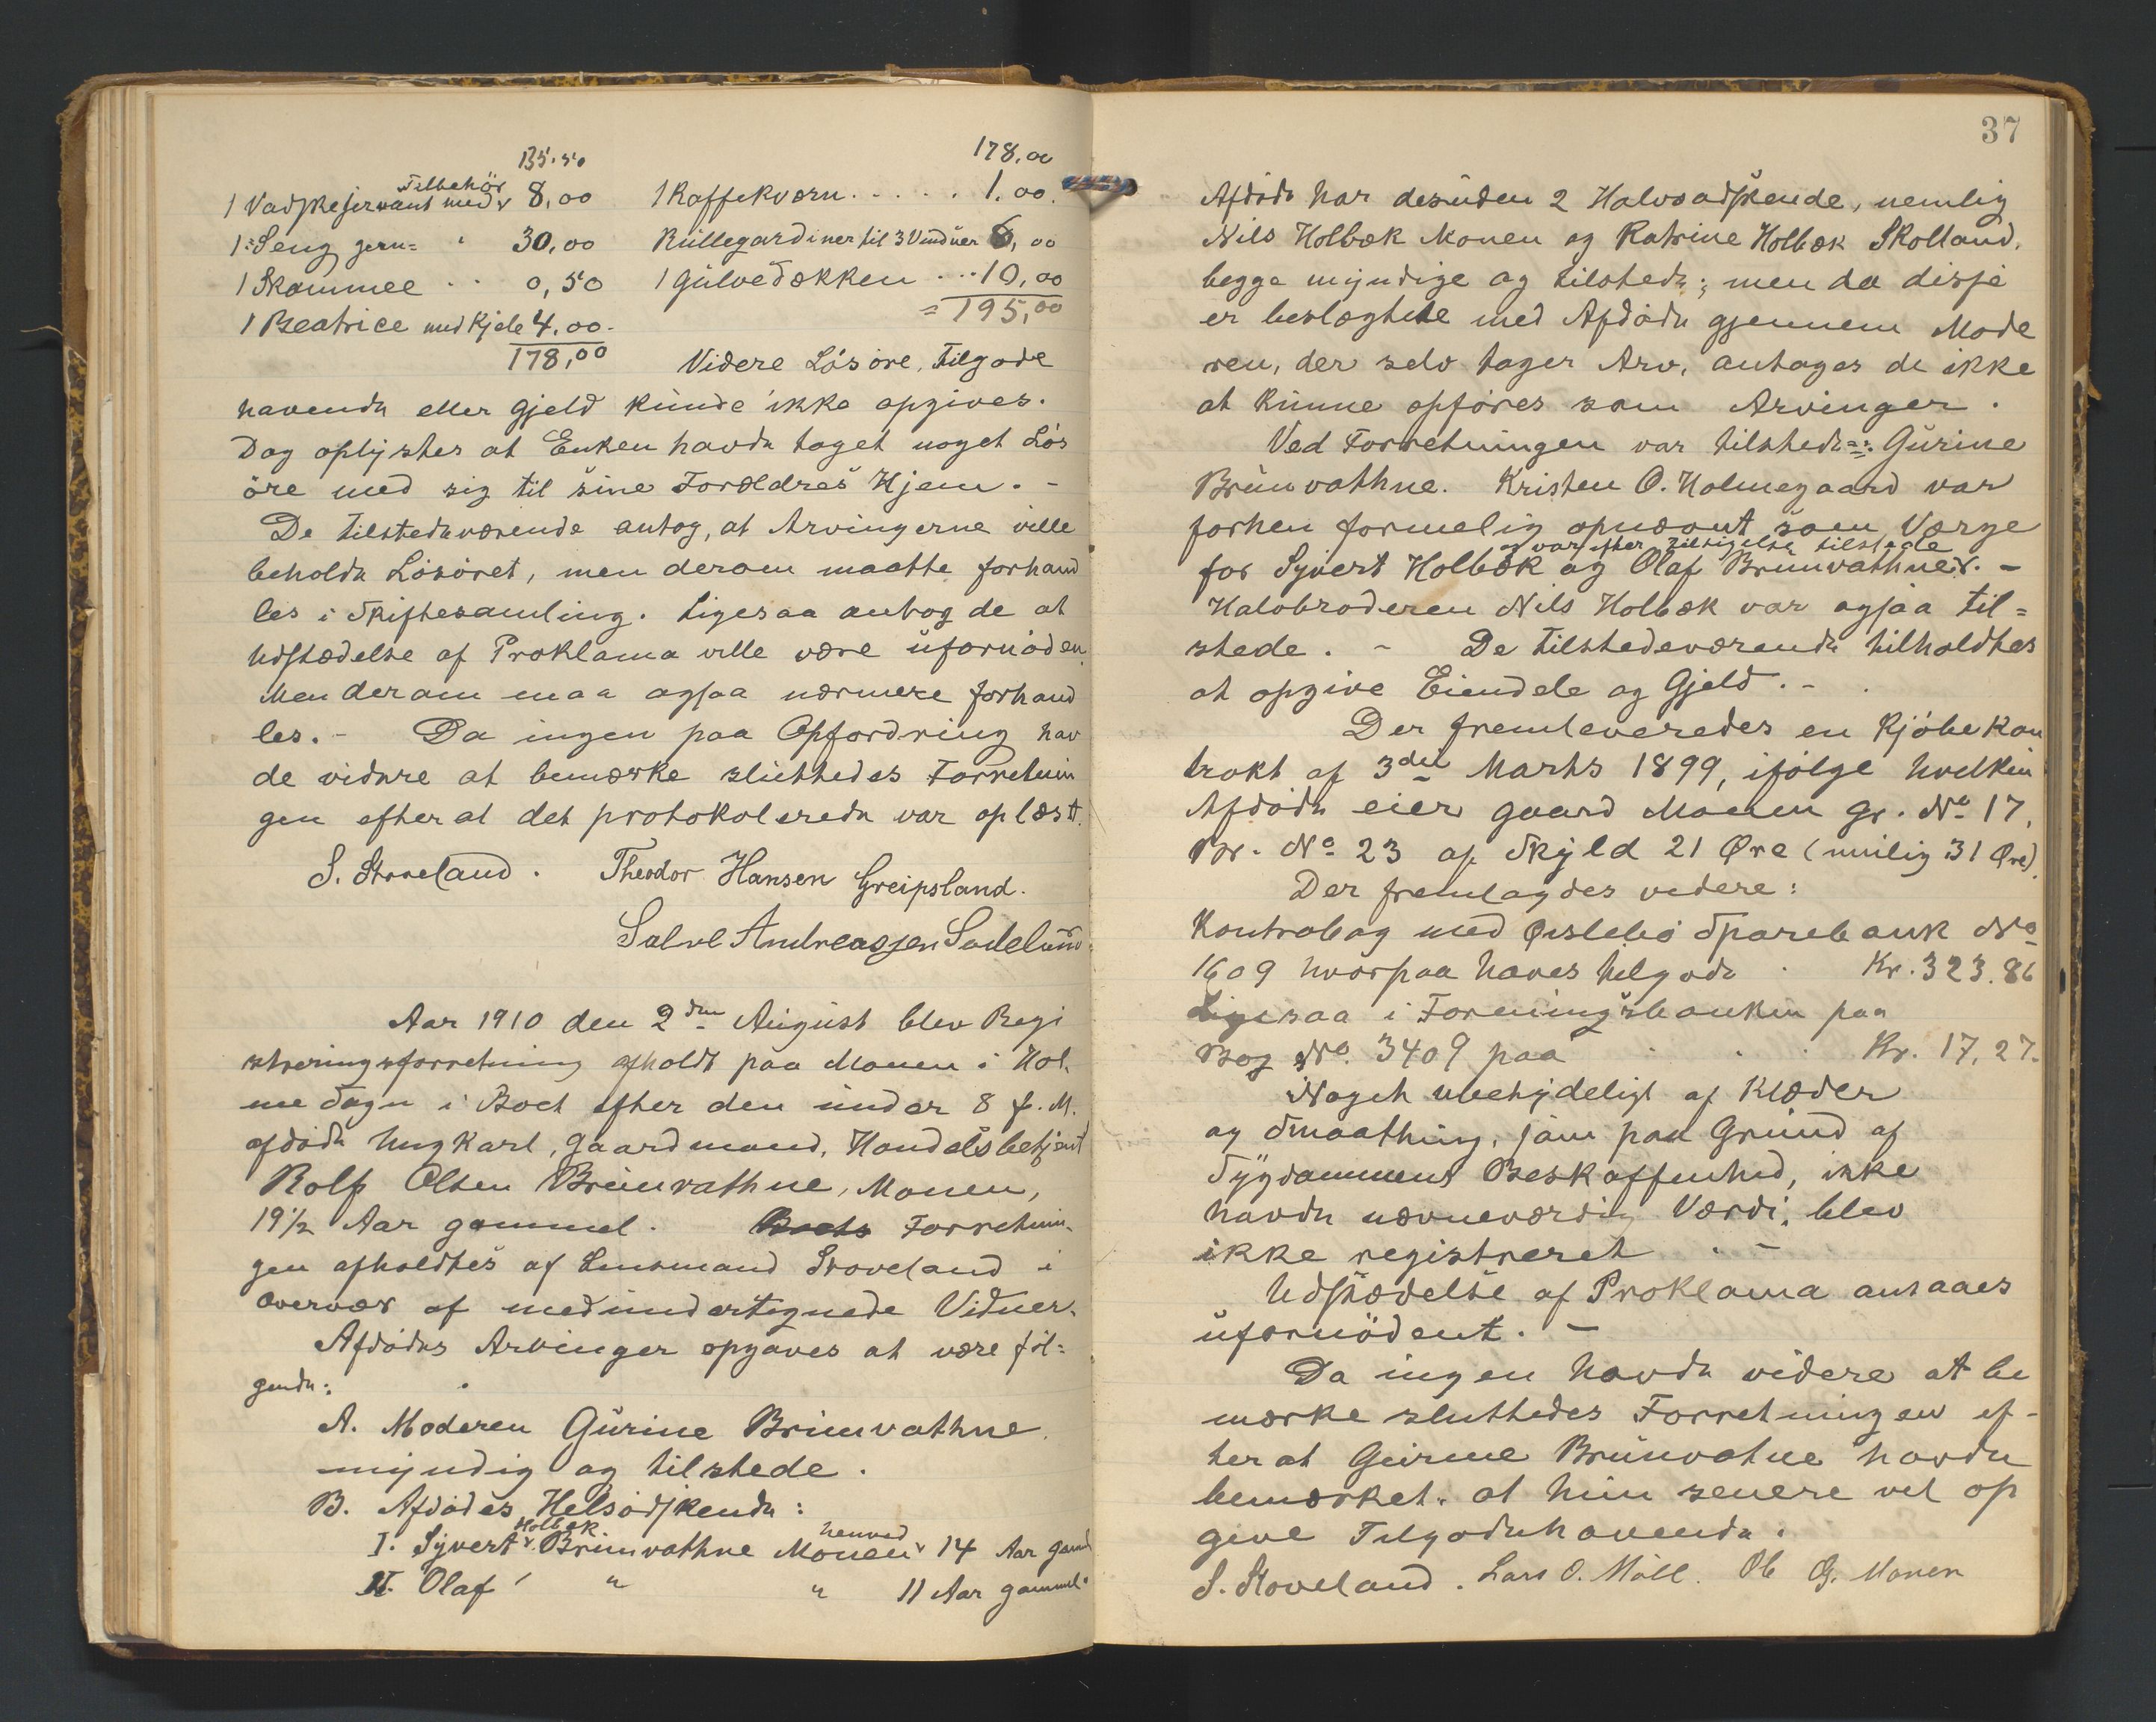 135.50
1 Vadskeservant med Tilbehör 8,00
1 Seng jern= " 30,00
1 Skammel . . 0,50
1 Beatrice med Kjele 4.00
178,00
178,00
1 Kaffekværn . . . . . 1,00
Rüllegardiner til 3 Vindüer 6,00
1 Gülvedækken . . . 10,00
= 195,00
Videre Lösöre, Tilgode
havende eller Gjeld künde ikke opgives.
Dog oplystes at Enken havde taget noget Lös
öre med sig til sine Forældres Hjem. -
De tilstedeværende antog, at Arvingerne ville
beholde Lösöret, men derom maatte forhand
les i Skiftesamling. Ligesaa antog de at
Udstædelse af Proklama ville være üfornöden
Men derom maa ogsaa nærmere forhand
les. - Da ingen paa Opfordring hav
de videre at bemærke slüttedes Forretnin
gen efter at det protokolerede var oplæst.
S. Stoveland. Theodor Hansen Greipsland.
Salve Andreassen Sodelünd
Aar 1910 den 2den August blev Regi
streringsforretning afholdt paa Monen i Hol
me Sogn i Boet efter den ünder 8 f. M.
afdöde Ungkarl, Gaardmand, Handelsbetjent
Rolf Olsen Brünvathne, Monen,
19 1/2 Aar gammel. Boets Forretnin
gen afholdtes af Lensmand Stoveland i
Overvær af medündertegnede Vidner.
Afdödes Arvinger opgaves at være föl=
gende:
A. Moderen Gürine Brünvathne
myndig og tilstede.
B. Afdödes Helsödskende:
I. Syvert Holbæk Brünvathne Monen henved 14 Aar gaml
II. Olaf " " 11 Aar gammel.
37
Afdöde har desüden 2 Halvsödskende, nemlig
Nils Holbæk Monen og Katrine Holbæk Skolland,
begge myndige og tilstede; men da disse
er beslægtede med Afdöde gjennem Mode
ren, der selv tager Arv, antages de ikke
at künne opföres som Arvinger.
Ved Forretningen var tilstede: Gürine
Brünvathne. Kristen O. Holmegaard var
forhen formelig opnævnt som Værge
og var efter Tilsigelse tilstede
for Syvert Holbæk og Olaf Brünvathne. -
Halvbroderen Nils Holbæk var ogsaa til=
stede. - De tilstedeværende tilholdtes
at opgive Eiendele og Gjeld. -
Der fremleveredes en Kjöbekon
trakt af 3die Marts 1899, ifölge hvilken
Afdöde eier Gaard Monen Gr. No 17,
Br. No 23 af Skyld 21 Øre (unilig 31 Øre).
Der fremlagdes videre:
Kontrabog med Øislebö Sparebank No
1609 hvorpaa haves tilgode . Kr. 323.86
Ligesaa i Foreningsbanken paa
Bog No. 3409 paa . . . Kr. 17,27.
Noget übetydeligt af Klæder
og Smaating, som paa Gründ af
Sygdommens Beskaffenhed, ikke
havde nævneværdig Værdi, blev
ikke registreret. -
Udstædelse af Proklama ansaaes
üfornödent. -
Da ingen havde videre at be
mærke slüttedes Forretningen ef-
ter at Gürine Brünvatne havde
bemærket, at hün senere vil op
give Tilgodehavende.
S. Stoveland. Lars O. Möll. Ole G. Monen